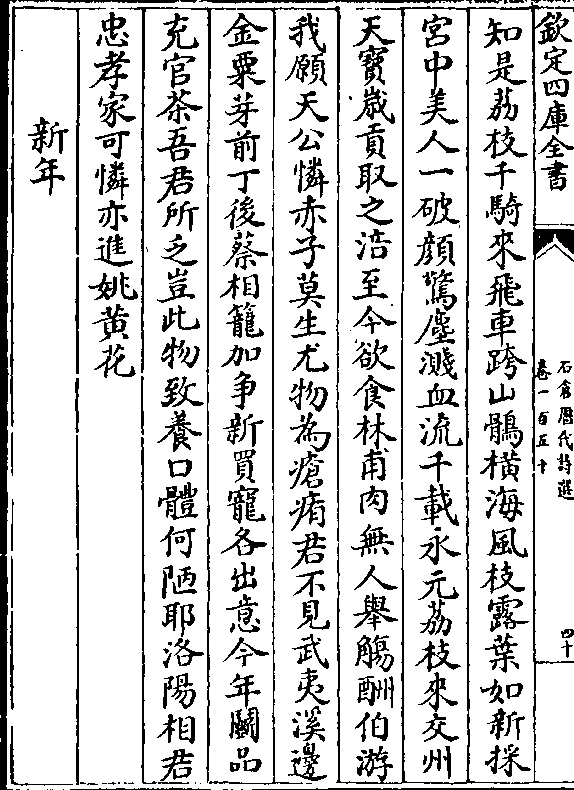 欽定四庫全書
石倉歷代詩選
卷一百五十
四十
知是荔枝千騎來飛車跨山鶻橫海風枝露葉如新採
宮中美人一破顏驚塵濺血流千載永元荔枝來交州
天寶歲貢取之涪至今欲食林甫肉無人舉觴酬伯游
我願天公憐赤子莫生尤物為瘡痏君不見武夷溪邊
金粟芽前丁後蔡相籠加争新買寵各出意今年鬭品
充官茶吾君所乏豈此物致養口體何陋耶洛陽相君
忠孝家可憐亦進姚黃花
新年